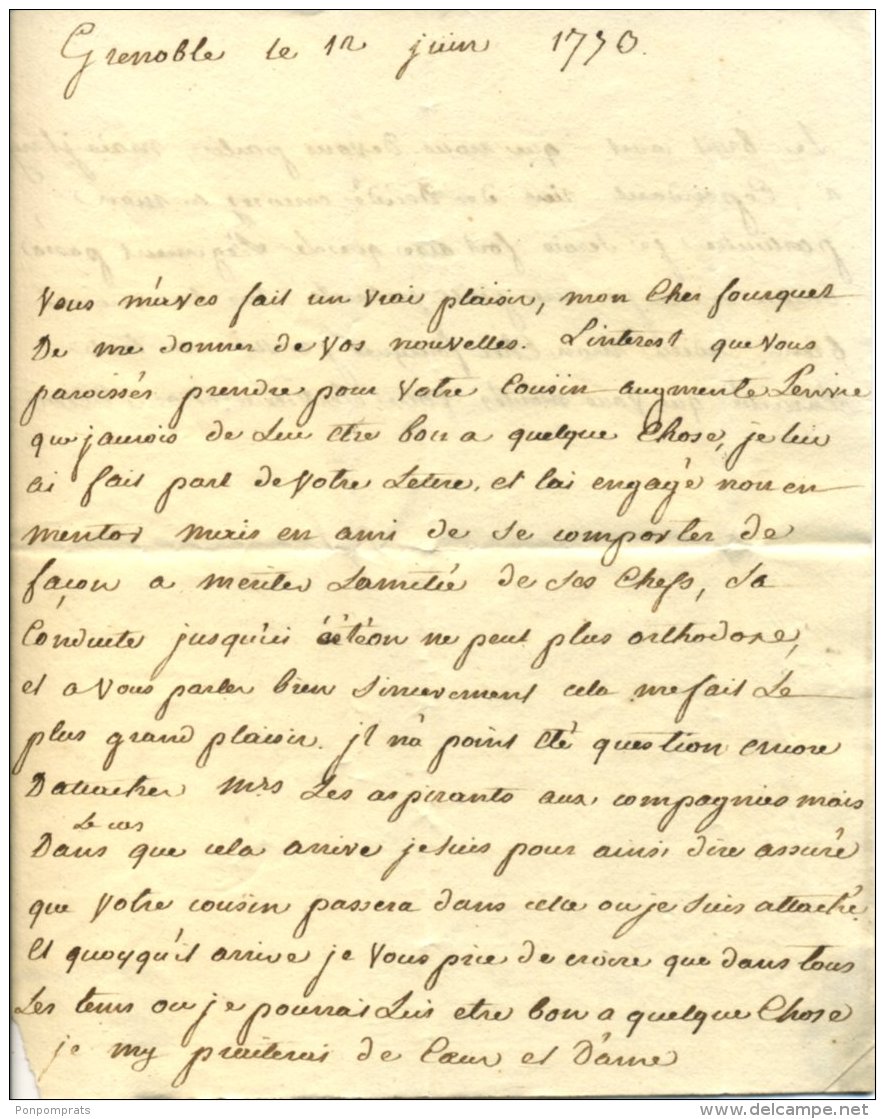 Grenoble le 12 juin 1730.
Vous m'aves fait un vrai plaisir, mon Cher fourquet
De me donner de Vos nouvelles. L'interest que Vous
paroissés prendre pour Votre Cousin augmente Lenvie
que jaurois de Lui etre bon a quelque Chose, je lui
ai fait part de Votre Lettre, et lai engagé non en
mentor mais en ami de se comporter de
façon a meriter Lamitié de ses Chefs, Sa
Conduite jusqu'ici été on ne peut plus orthodoxe,
et a Vous parler bien sincerement cela me fait Le
plus grand plaisir. jl n'a point été question encore
Dattacher Mrs Les aspirants aux compagnies mais
Le cas
Dans que cela arrive je suis pour ainsi dire assuré
que Votre cousin passera dans celle ou je suis attaché.
Et quoyqu'il arrive je Vous prie de croire que dans tous
Les tems ou je pourrai Lui etre bon a quelque Chose
je my preterai de Cœur et D'ame
Ponpomprats
delcampe.net